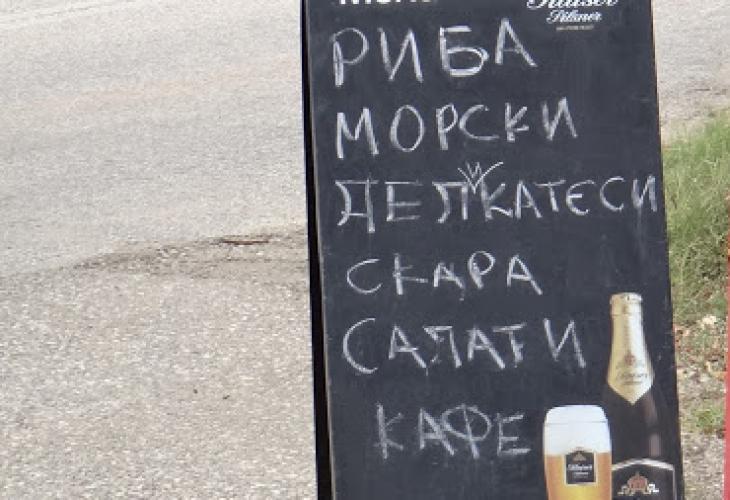 Kaiser
Pilsner
РИБА
МОРСКИ
ДЕЛИКАТЕСИ
СКАРА
САЛАТИ
КАФЕ